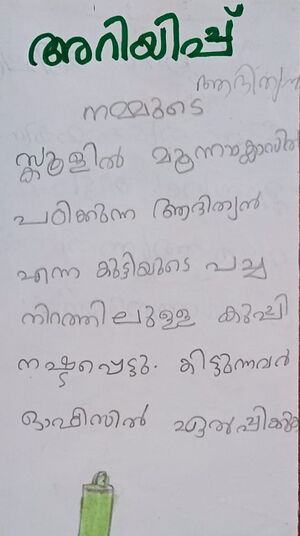 അറിയിപ്പ്
ആദിത്യൻ
നമ്മുടെ
സ്കൂളിൽ മൂന്നാംക്ലാസിൽ
പഠിക്കുന്ന ആദിത്യൻ
എന്ന കുട്ടിയുടെ പച്ച
നിറത്തിലുള്ള കുപ്പി
നഷ്ടപ്പെട്ടു. കിട്ടുന്നവർ
ഓഫീസിൽ ഏൽപ്പിക്കുക